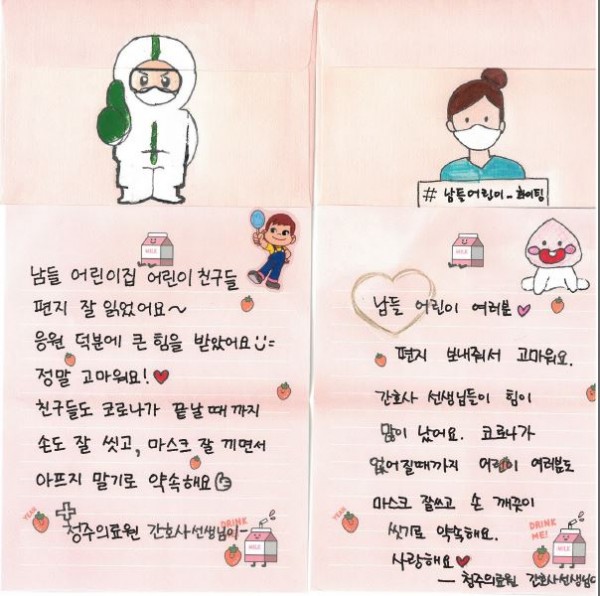 MILK
남들 어린이집 어린이 친구들
편지 잘 읽었어요~
응원 덕분에 큰 힘을 받았어요
정말 고마워요!
친구들도 코로나가 끝날 때 까지
손도 잘 씻고, 마스크 잘 끼면서
아프지 말기로 약속해요
YEAH
청주의료원 간호사선생님이-
DRINK ME!
MILK
#남들어린이_화이팅
MILK
남들 어린이 여러분
편지 보내줘서 고마워요.
간호사 선생님들이 힘이
많이 났어요. 코로나가
없어질때까지 어린이 여러분도
마스크 잘쓰고 손 깨끗이
씻기로 약속해요.
YEAH
DRINK ME!
사랑해요
MILK
— 청주의료원 간호사선생님